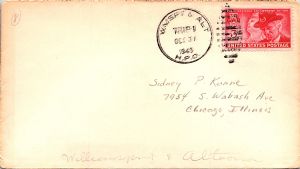 WMSPT & ALT
TRIP 1
DEC 31
1949
H.P.O.
UNITED STATES POSTAGE
Sidney P
7954 S. Wabash Ave
Chicago, Illinois
Williamsport & Altoona